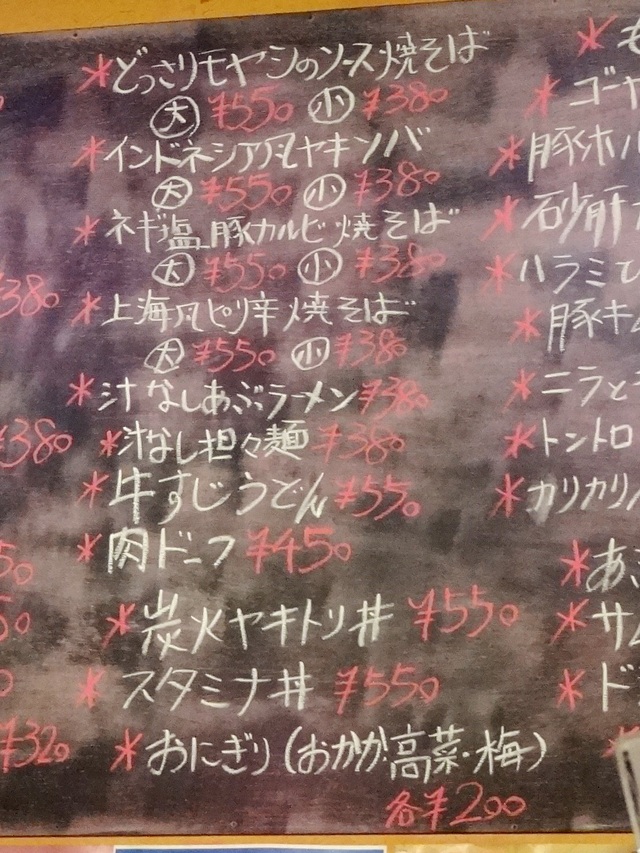 *どっさりモヤシのソース焼そば
大 ¥550 小 ¥380
*インドネシア風ヤキソバ
大 ¥550 小 ¥380
*ネギ塩豚カルビ焼そば
大 ¥550 小 ¥380
*上海風ピリ辛焼そば
大 ¥550 小 ¥380
*汁なしあぶラーメン ¥380
*汁なし担々麺 ¥380
*牛すじうどん ¥550
*肉ドーフ ¥450
*炭火ヤキトリ丼 ¥550
*スタミナ丼 ¥550
*おにぎり(おかか・高菜・梅)
各¥200
¥380
¥380
50
50
0
¥320
*
*ゴーヤ
*豚ホル
*砂肝
*ハラミ
*豚キム
*ニラと
*トントロ
*カリカリ
*あ
*サ
*ド